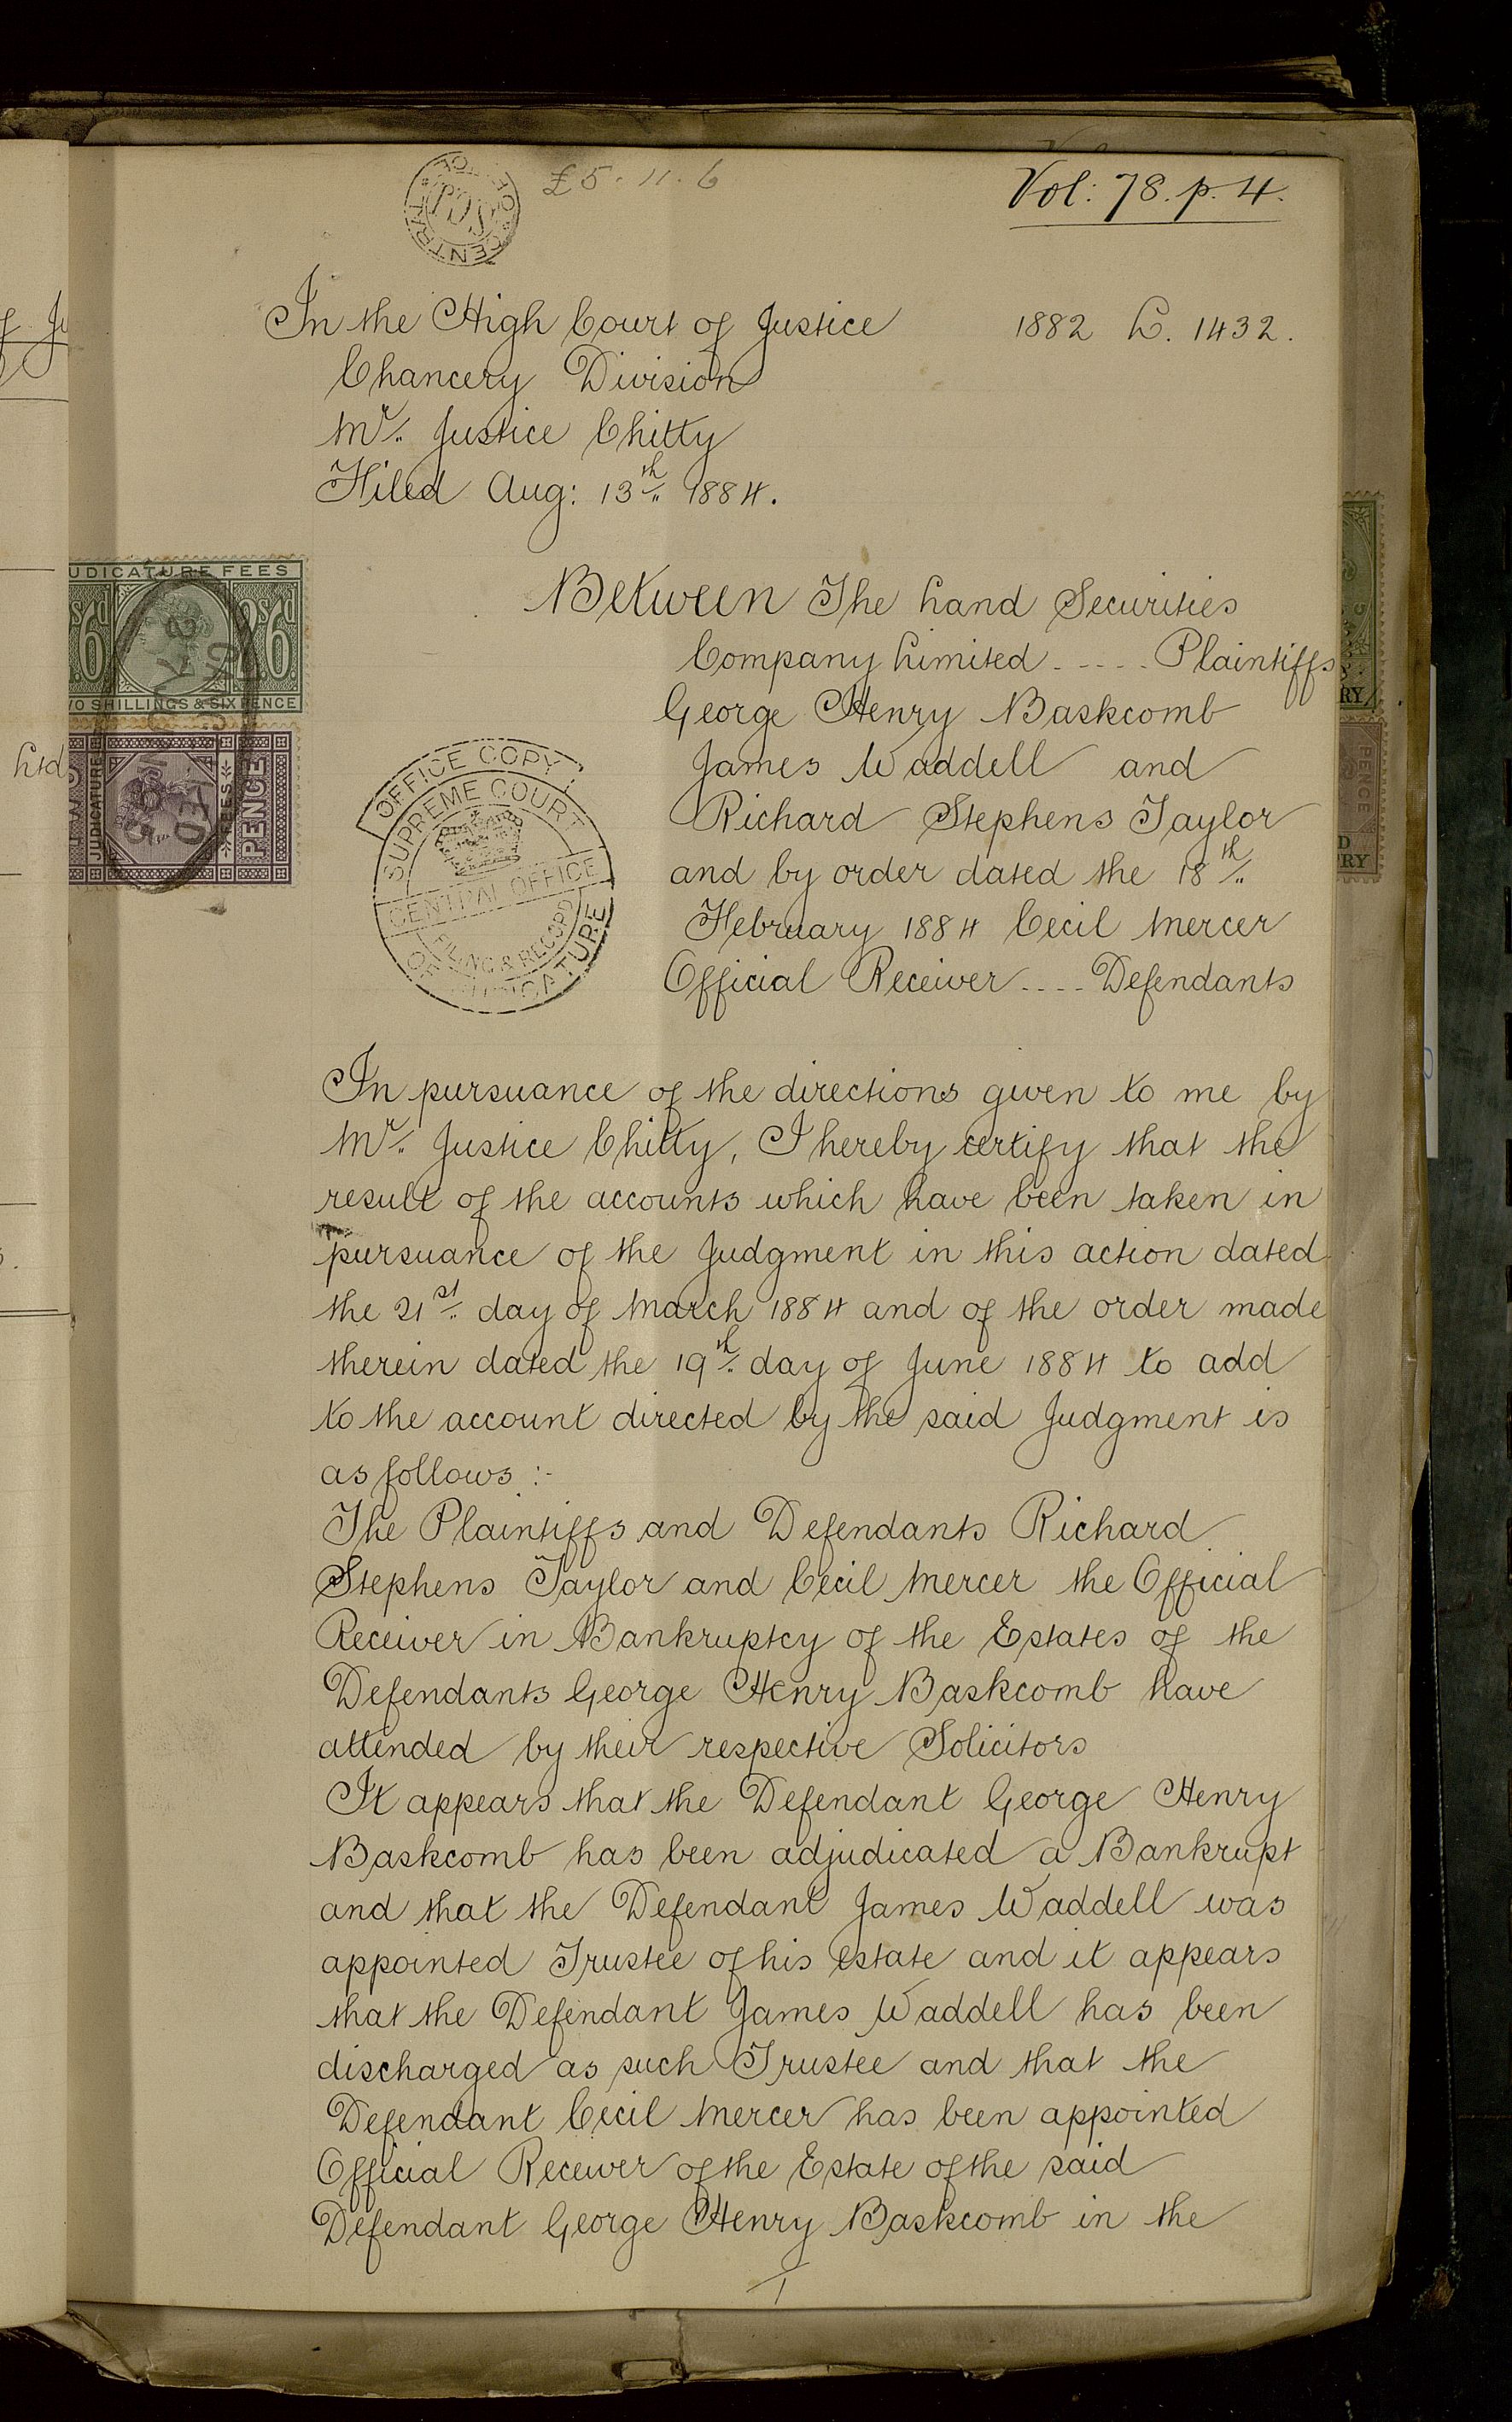 £5.11.6
Vol: 78. p. 4.
In the High Court of Justice 1882 L. 1432.
Chancery Division
Mr. Justice Chitty
Filed Aug: 13th 1884.
UDICATURE FEES
s6d 2s6d
WO SHILLINGS & SIXPENCE
JUDICATURE FEES PENCE
Ltd
Between The Land Securities
Company Limited ..... Plaintiffs
George Henry Baskcomb
James Waddell and
Richard Stephens Taylor
and by order dated the 18th
February 1884 Cecil Mercer
Official Receiver .... Defendants
OFFICE COPY
SUPREME COURT
CENTRAL OFFICE
FILING & RECORD
OF JUDICATURE
In pursuance of the directions given to me by
Mr. Justice Chitty, I hereby certify that the
result of the accounts which have been taken in
pursuance of the Judgment in this action dated
the 21st day of March 1884 and of the order made
therein dated the 19th day of June 1884 to add
to the account directed by the said Judgment is
as follows :-
The Plaintiffs and Defendants Richard
Stephens Taylor and Cecil Mercer the Official
Receiver in Bankruptcy of the Estates of the
Defendants George Henry Baskcomb have
attended by their respective Solicitors
It appears that the Defendant George Henry
Baskcomb has been adjudicated a Bankrupt
and that the Defendant James Waddell was
appointed Trustee of his estate and it appears
that the Defendant James Waddell has been
discharged as such Trustee and that the
Defendant Cecil Mercer has been appointed
Official Receiver of the Estate of the said
Defendant George Henry Baskcomb in the
1